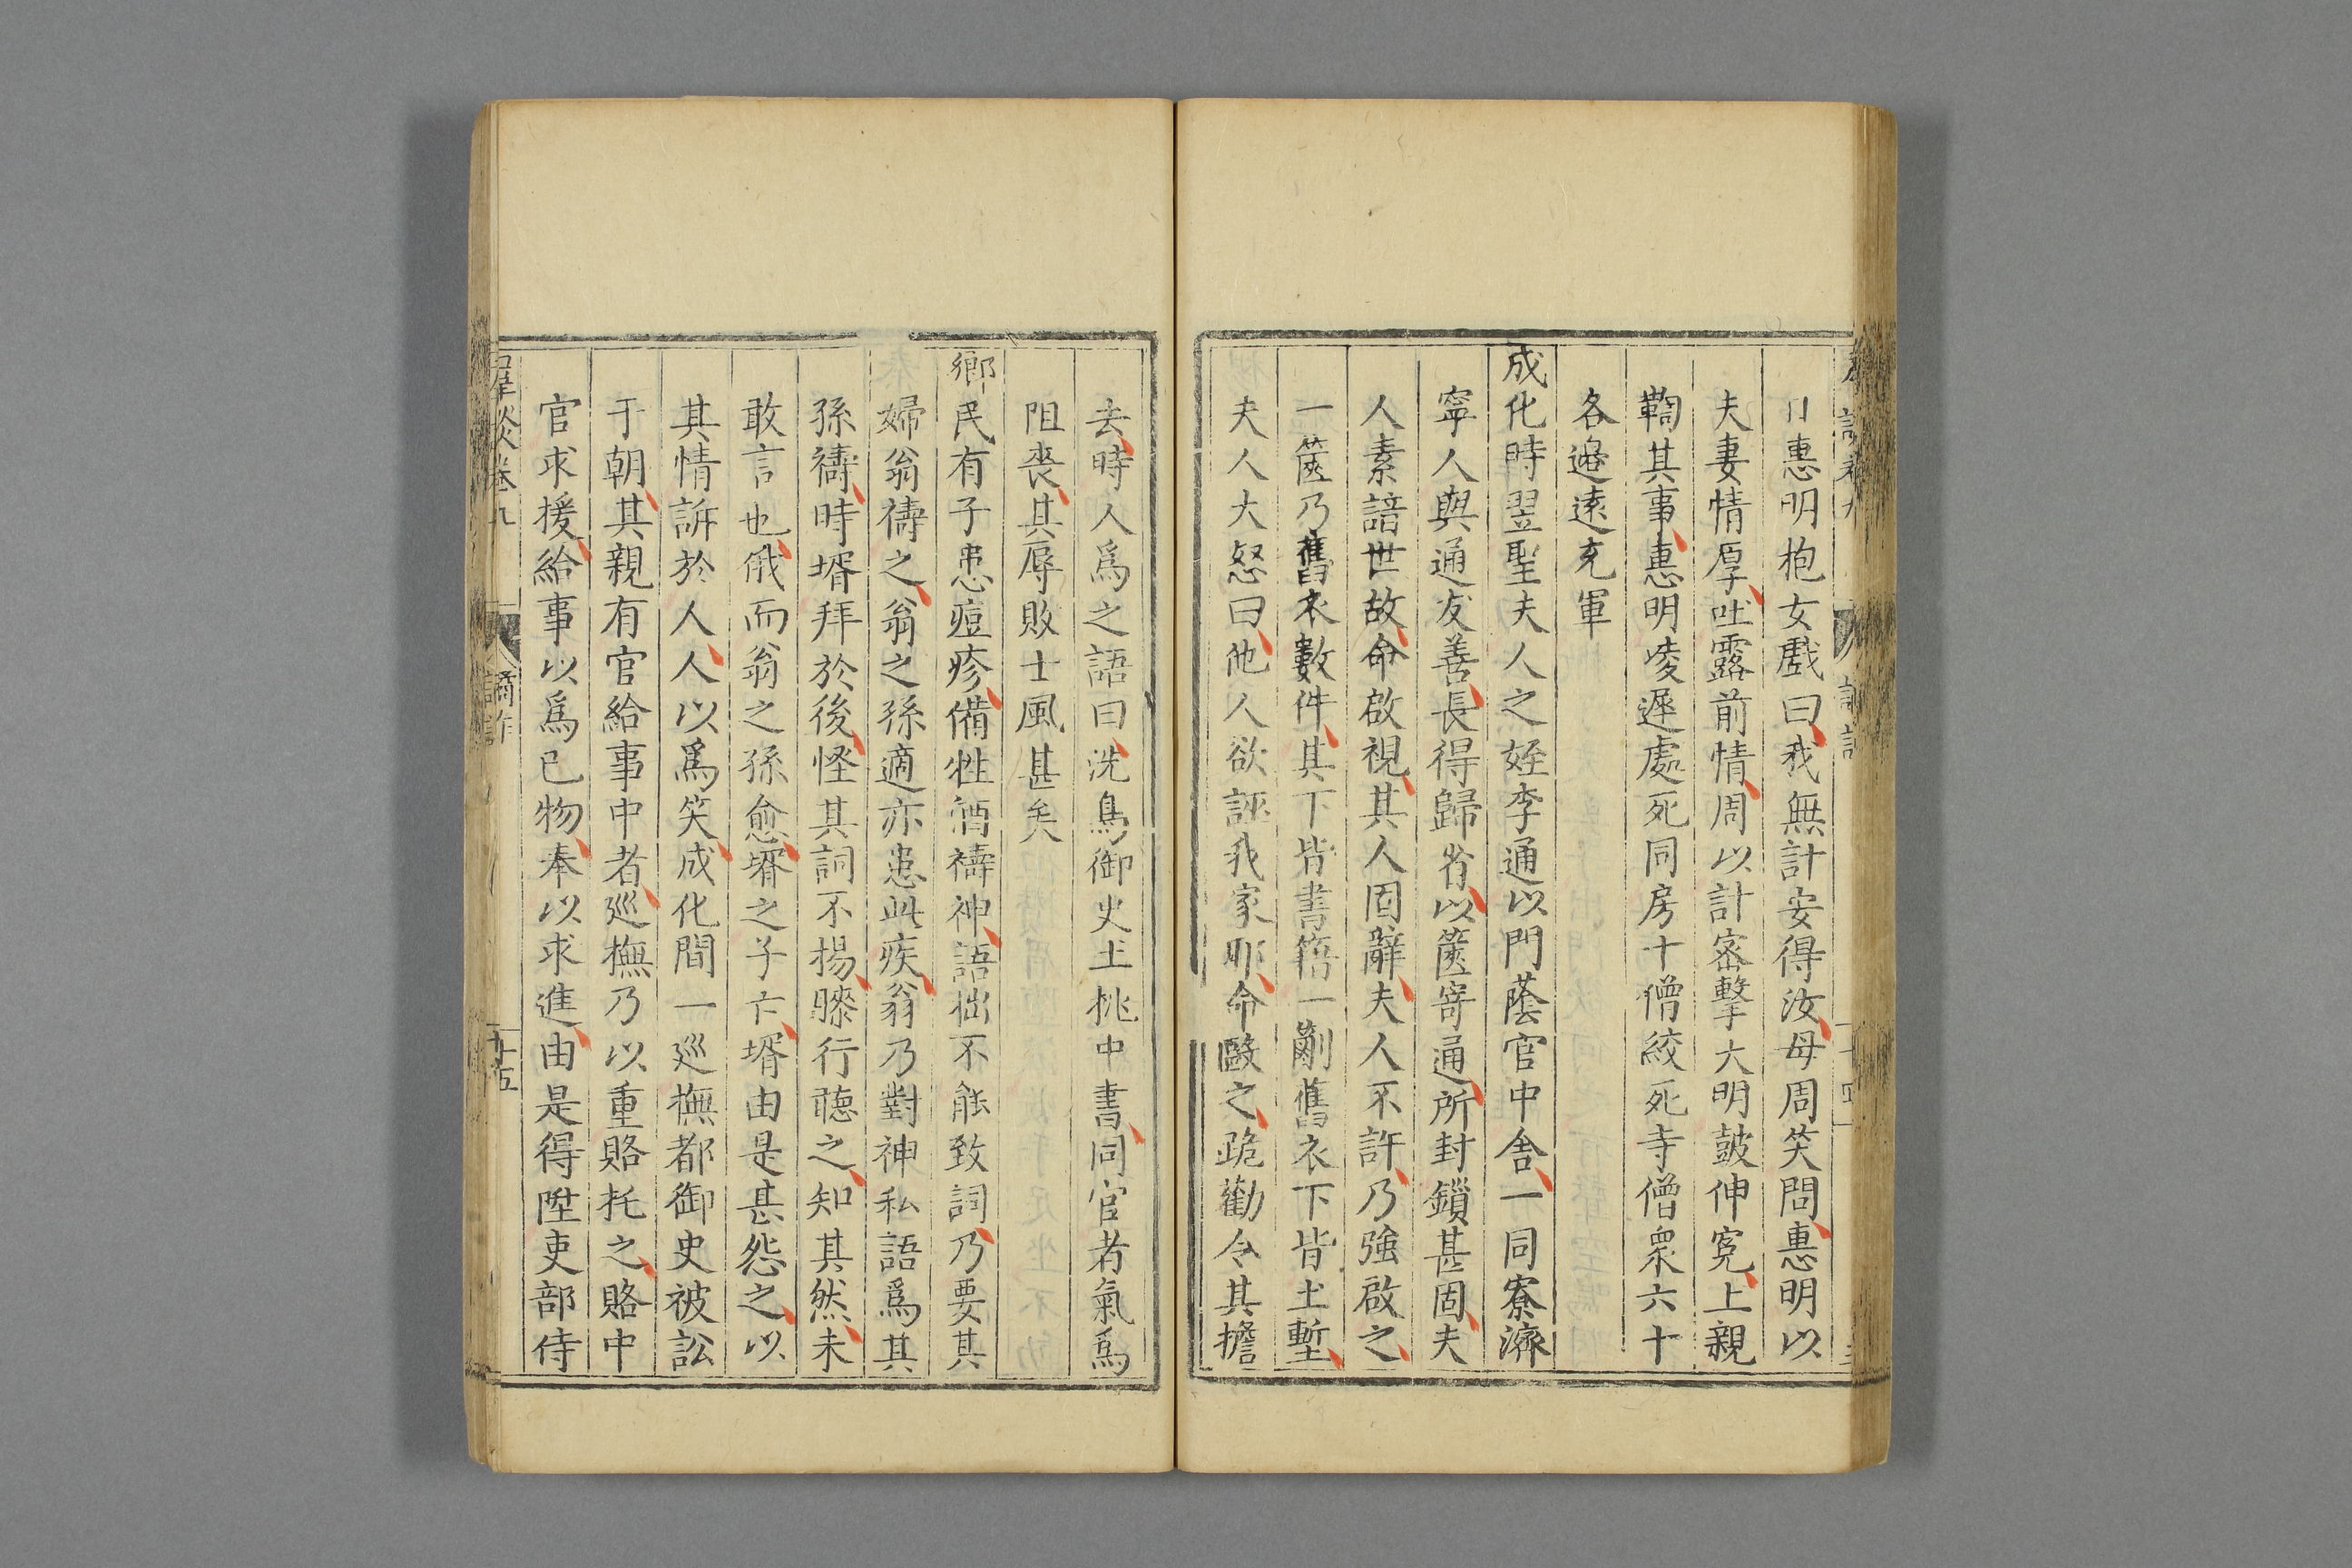 日惠明抱女戲曰我無計安得汝母周笑問惠明以
夫妻情厚吐露前情周以計密擊大明鼓伸寃上親
鞫其事惠明凌遲處死同房十僧絞死寺僧衆六十
各邉逺充軍
成化時翌聖夫人之姪李通以門蔭官中舍一同寮濟
寧人與通友善長得歸省以篋寄通所封鎖甚固夫
人素諳世故命啟視其人固辭夫人不許乃強啟之
一篋乃舊衣數件其下皆書籍一劚舊衣下皆土塹
夫人大怒曰他人欲誣我家耶命毆之跪勸令其擔
去時人爲之語曰洗鳥御史土桃中書同官者氣爲
阻喪其辱敗士風甚矣
鄉民有子患痘疹備牲酒禱神語拙不能致詞乃要其
婦翁禱之翁之孫適亦患此疾翁乃對神私語爲其
孫禱時壻拜於後怪其詞不揚膝行聽之知其然未
敢言也俄而翁之孫愈壻之子亡壻由是甚怨之以
其情訴於人人以爲笑成化間一巡撫都御史被訟
于朝其親有官給事中者巡撫乃以重賂托之賂中
官求援給事以爲已物奉以求進由是得陞吏部侍
羣談卷九
譎詐
十五